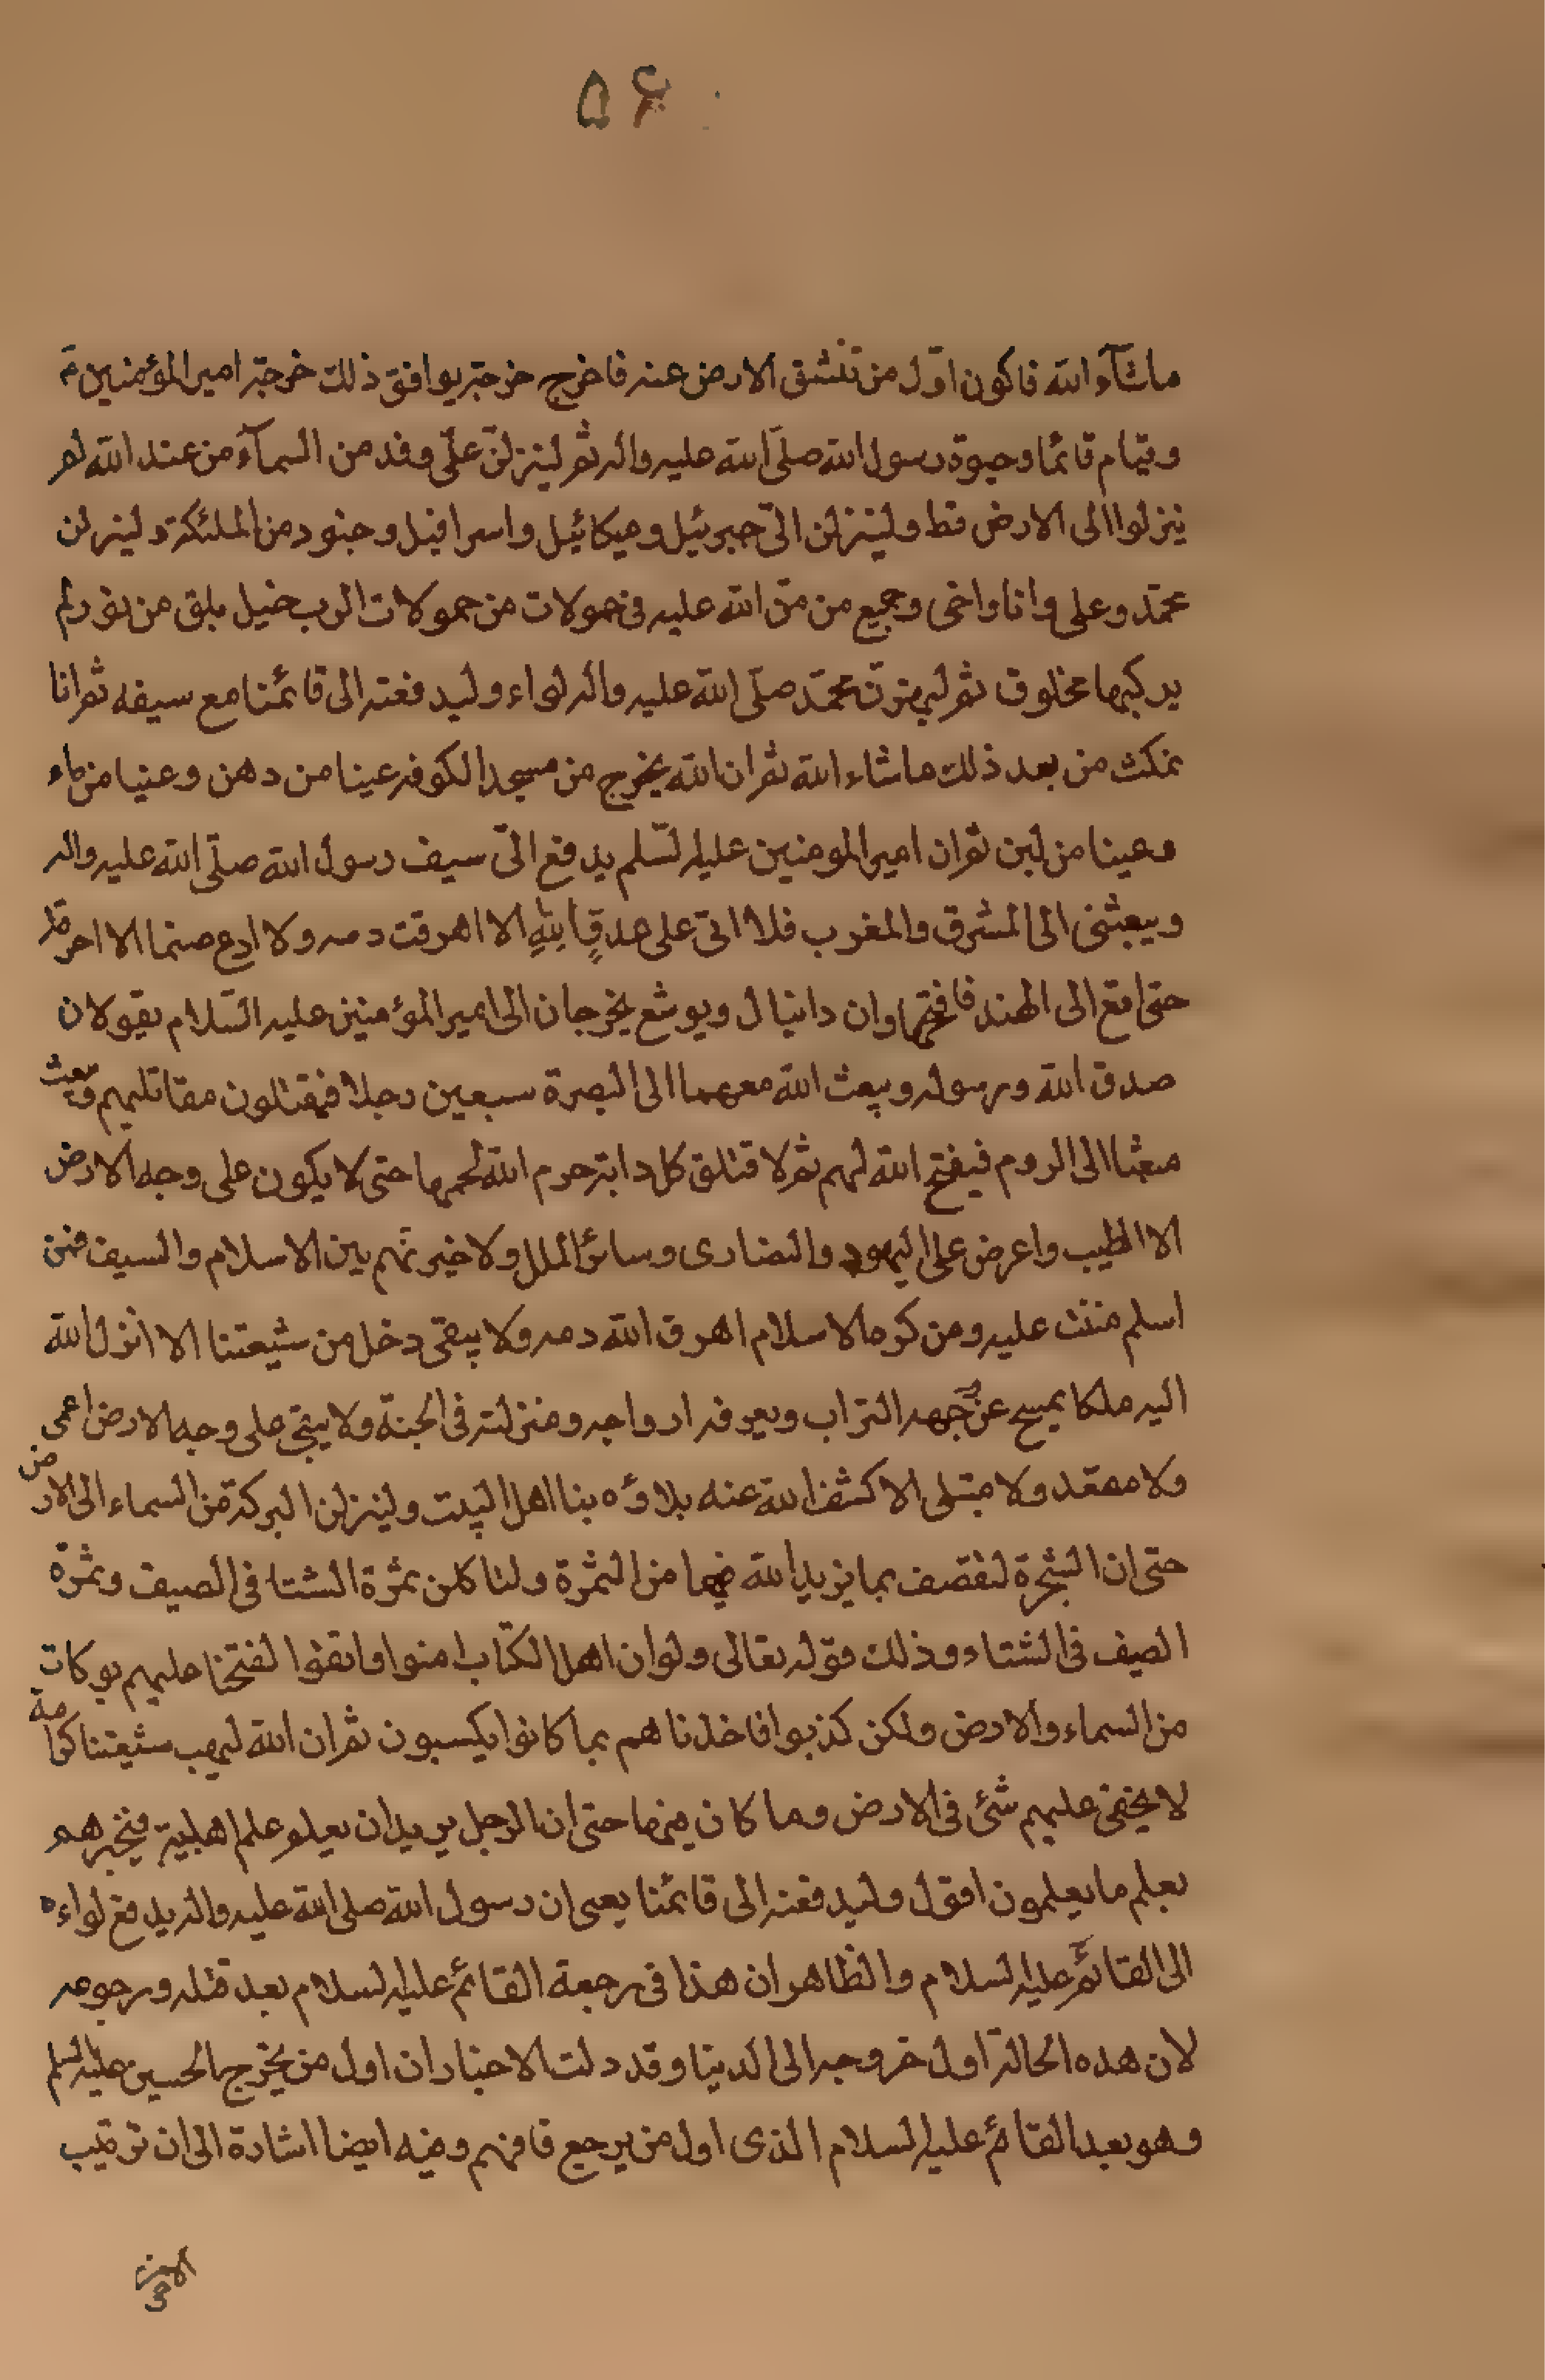 ۵۶
ما شآء الله فاكون اوّل من تنشق الارض عنه فاخرج خرجة يوافق ذلك خرجة امير المؤمنين ع
وقيام قائمنا وحيوة رسول الله صلّى الله عليه واله ثم لينزلنّ علىّ وفد من السمآء من عند الله لم
ينزلوا الى الارض قط ولينزلن الىّ جبرئيل وميكائيل واسرافيل وجنود من الملئكة ولينزلن
محمّد وعلى وانا واخى وجميع من منّ الله عليه فى حمولات من حمولات الرب خيل بلق من نور لم
يركبها مخلوق ثم ليهزنّ محمّد صلّى الله عليه واله لواءه وليدفعنه الى قائمنا مع سيفه ثم انا
نمكث من بعد ذلك ما شاء الله ثم ان الله يخرج من مسجد الكوفه عينا من دهن وعينا من ماء
وعينا من لبن ثم ان امير المومنين عليه السّلم يدفع الىّ سيف رسول الله صلّى الله عليه واله
ويبعثنى الى المشرق والمغرب فلا اتى على عدوٍّ للهِ الا اهرقت دمه ولا ادع صنما الا احرقته
حتى اقع الى الهند فافتحها وان دانيال ويوشع يخرجان الى امير المؤمنين عليه السّلام يقولان
صدق الله ورسوله ويبعث الله معهما الى البصرة سبعين رجلا فيقتلون مقاتليهم ويبعث
بعثا الى الروم فيفتح الله لهم ثم لاقتلن كل دابة حرم الله لحمها حتى لا يكون على وجه الارض
الا الطيب واعرض على اليهود والنصارى وسائر الملل ولاخيرنهم بين الاسلام والسيف فمن
اسلم مننت عليه ومن كره الاسلام اهرق الله دمه ولا يبقى رجل من شيعتنا الا انزل الله
اليه ملكا يمسح عن وجهه التراب ويعرفه ازواجه ومنزلته فى الجنة ولا يبقى على وجه الارض اعمى
ولا مقعد ولا مبتلى الا كشف الله عنه بلاؤه بنا اهل البيت ولينزلن البركة من السماء الى الارض
حتى ان الشجرة لتقصف بما يزيد الله فيها من الثمرة ولتاكلن ثمرة الشتا فى الصيف وثمرة
الصيف فى الشتاء وذلك قوله تعالى ولو ان اهل الكتاب امنوا واتقوا لفتحنا عليهم بركات
من السماء والارض ولكن كذبوا فاخذناهم بما كانوا يكسبون ثم ان الله ليهب شيعتنا كرامة
لا يخفى عليهم شئ فى الارض وما كان فيها حتى ان الرجل يريد ان يعلم علم اهلبيته فيخبرهم
بعلم ما يعلمون اقول وليدفعنه الى قائمنا يعنى ان رسول الله صلى الله عليه واله يدفع لواءه
الى القائم عليه السلام والظاهر ان هذا فى رجعة القائم عليه السلام بعد قتله ورجوعه
لان هذه الحالة اول خروجه الى الدينا وقد دلت الاخبار ان اول من يخرج الحسين عليه السلم
وهو بعد القائم عليه السلام الذى اول من يرجع فافهم وفيه ايضا اشارة الى ان ترتيب